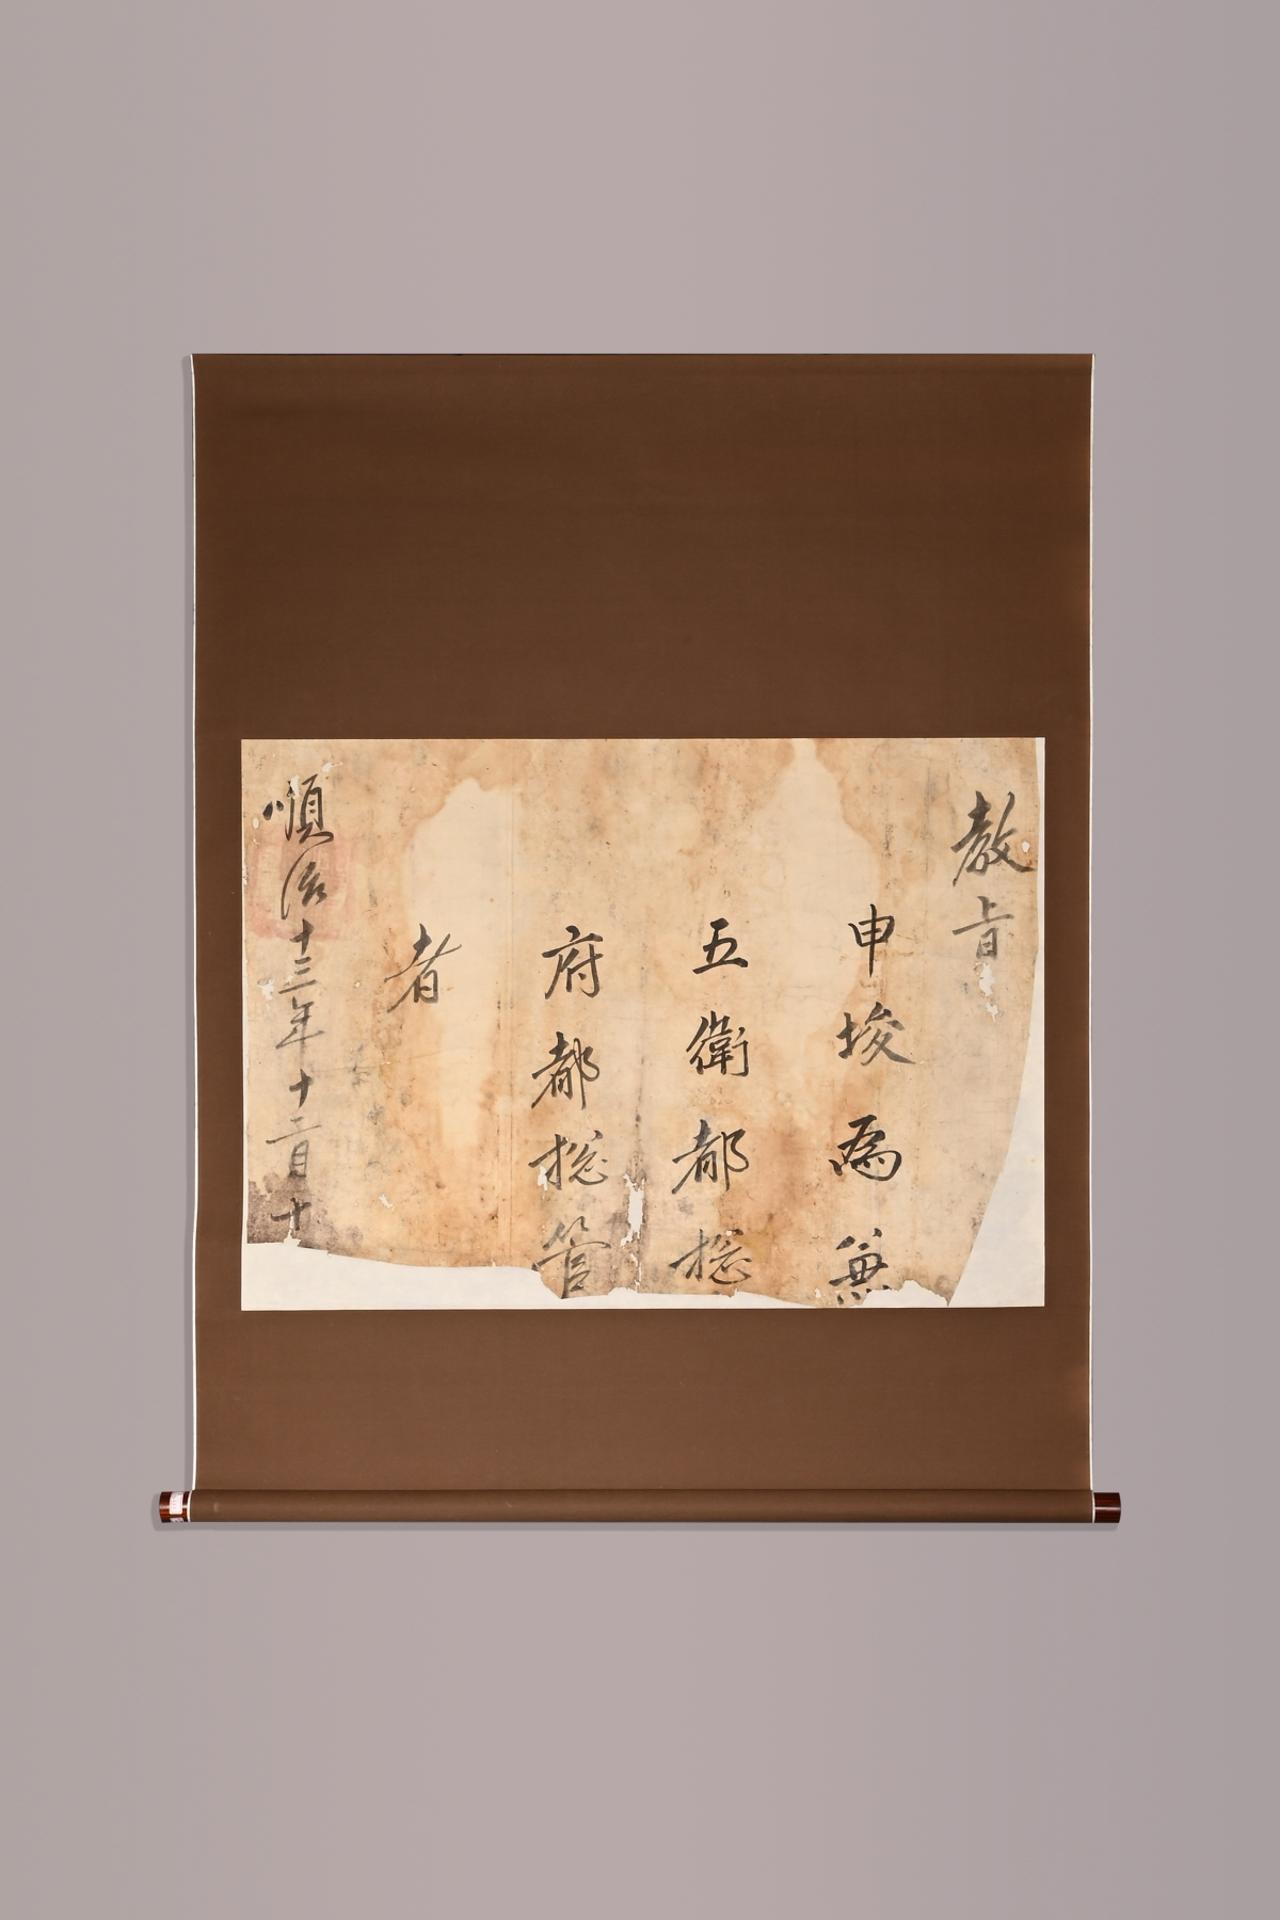 教旨
申埈為兼
五衛都揔
府都揔管
者
順治十三年十二月十